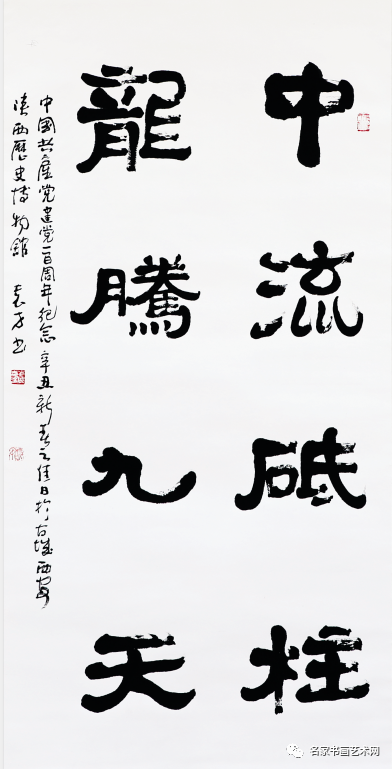 中流砥柱
龍騰九天
中国共产党建党一百周年纪念 辛丑新春之佳日於古城西安
陕西歷史博物館 袁方书
名家书画艺术网